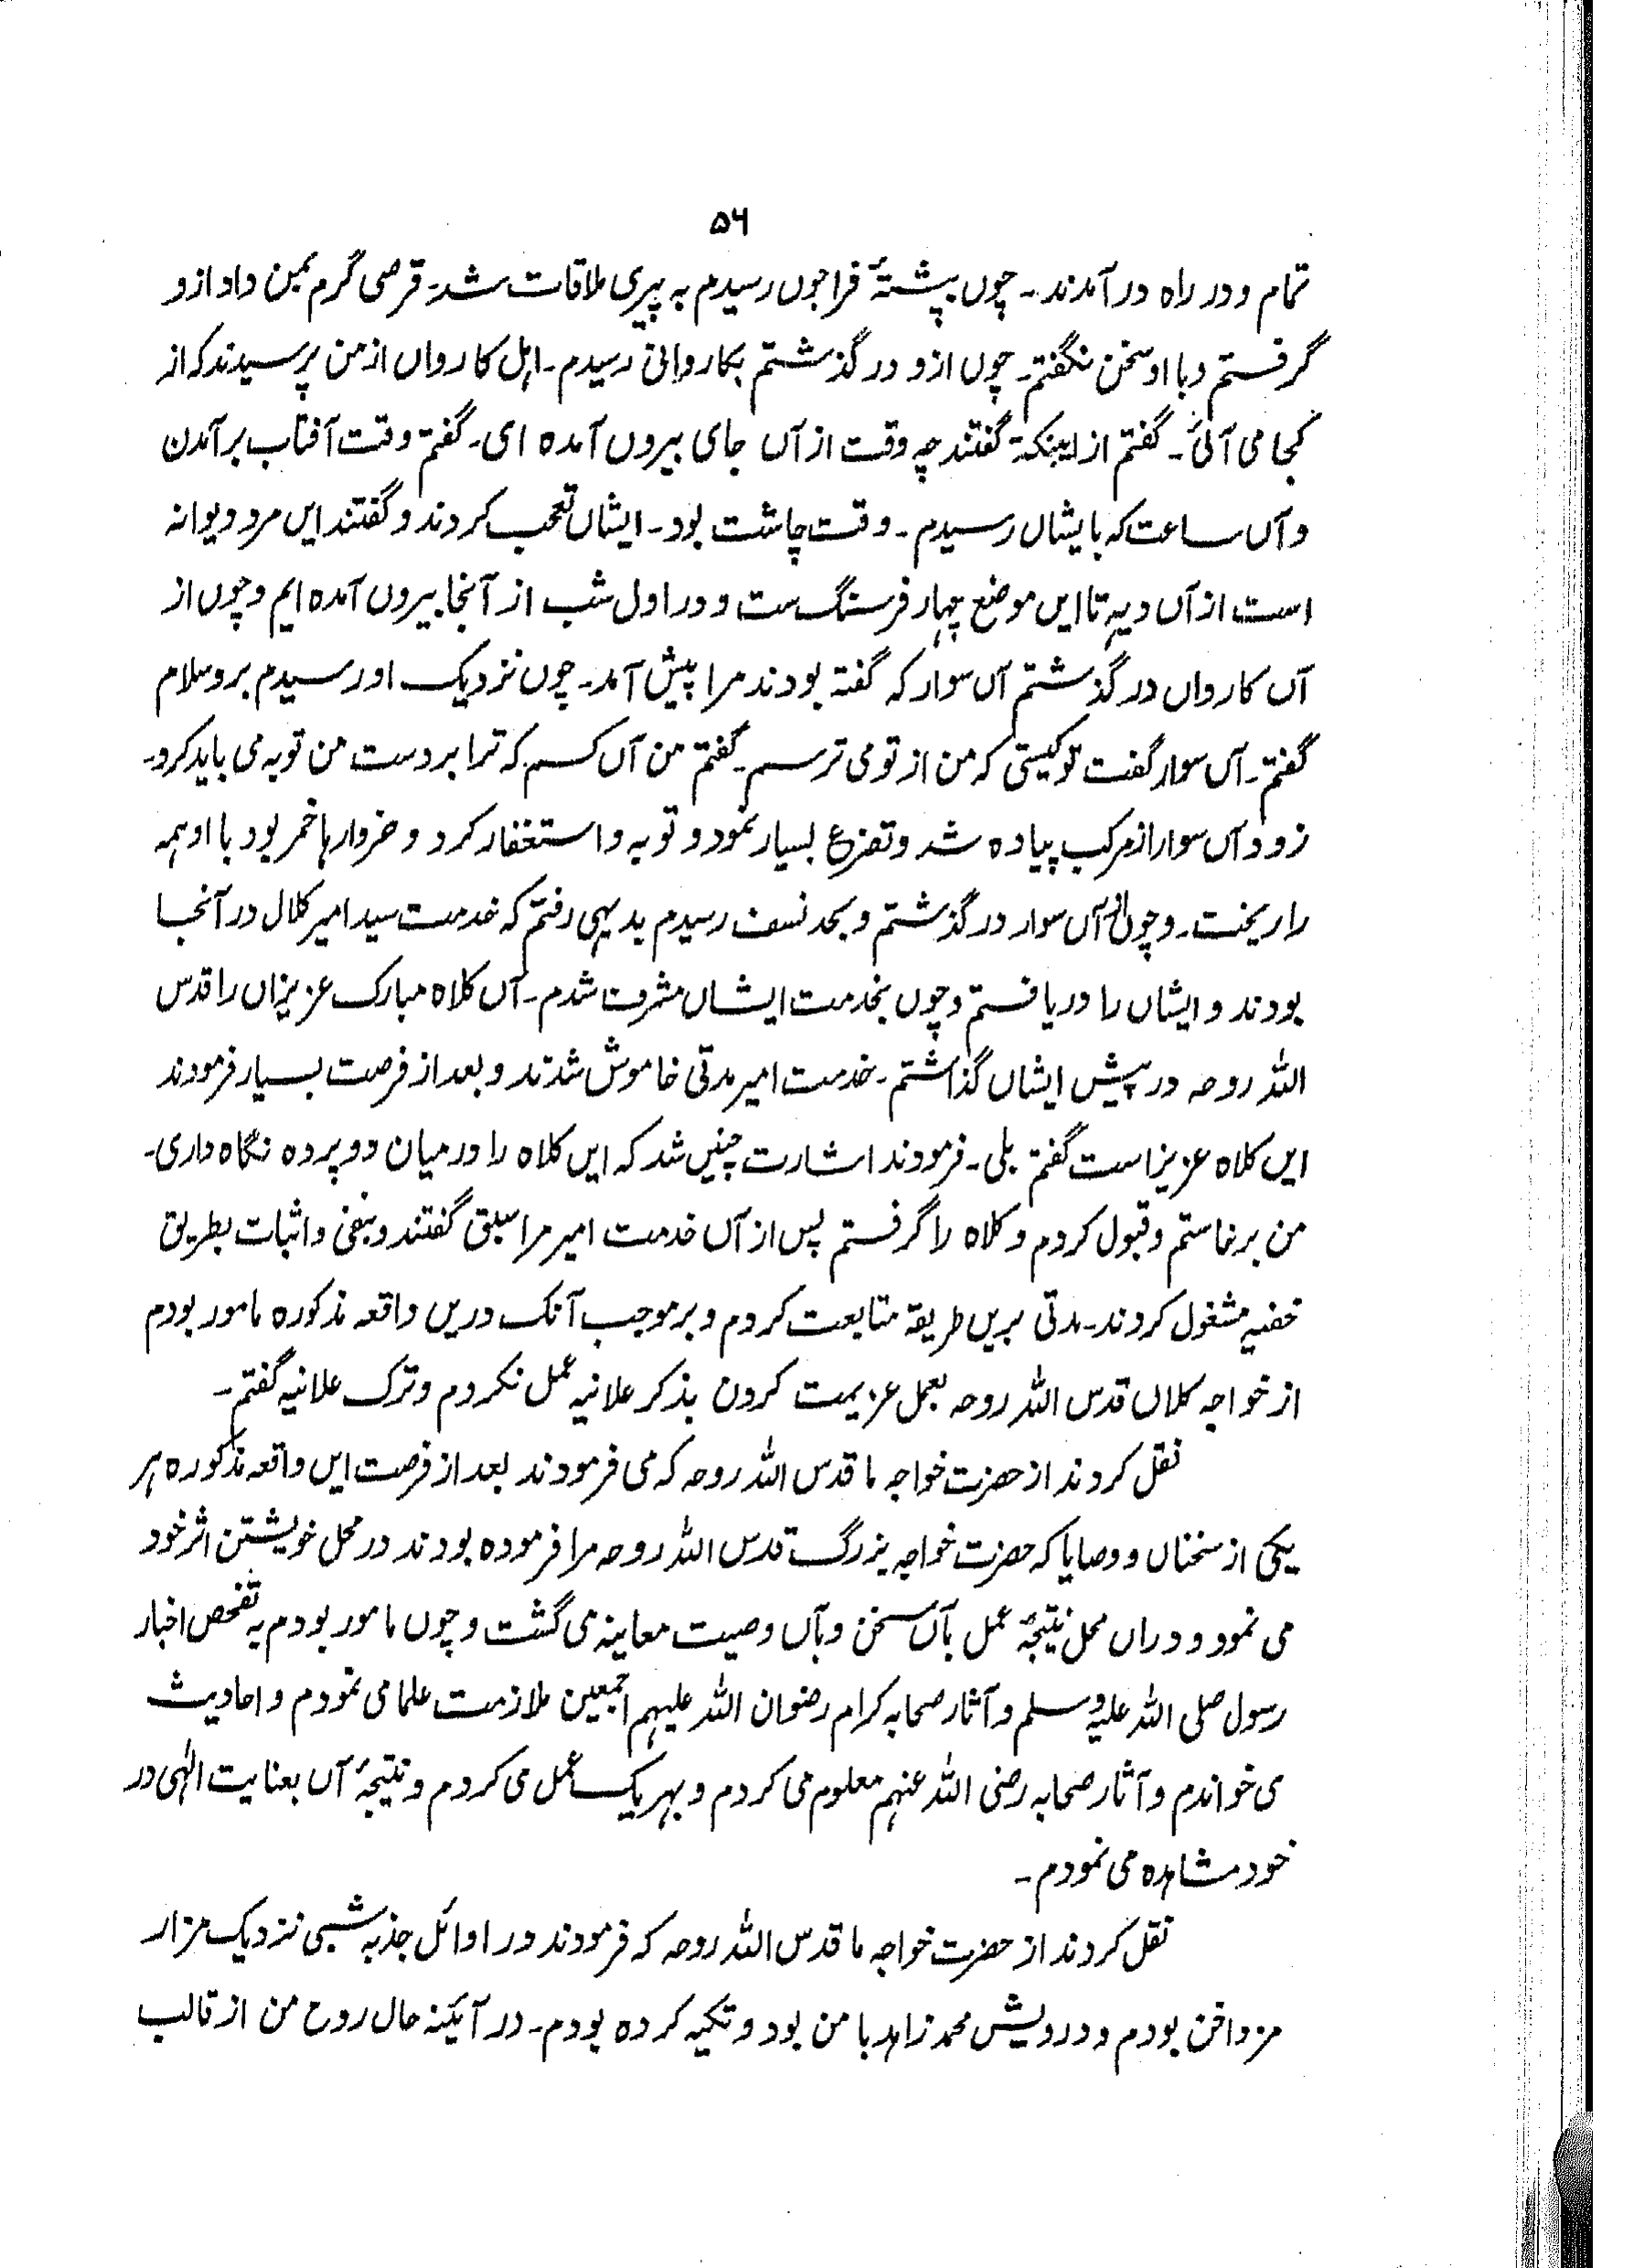 ۵۶
تمام و در راه درآمدند۔ چوں پشتۂ فراجوں رسیدم بہ پیری ملاقات شد۔ قرصی گرم بمن داد ازو
گرفتم و با او سخن نگفتم۔ چوں ازو درگذشتم بکاروانی رسیدم۔ اہل کارواں از من پرسیدند کہ از
کجا می آئی۔ گفتم از ایبنکتہ گفتند چہ وقت از آں جای بیروں آمدہ ای۔ گفتم وقت آفتاب برآمدن
و آں ساعت کہ بایشاں رسیدم۔ وقت چاشت بود۔ ایشاں تعجب کردند و گفتند ایں مرد دیوانہ
است از آں دیہہ تا ایں موضع چہار فرسنگ ست و در اول شب از آنجا بیروں آمدہ ایم و چوں از
آں کارواں درگذشتم آں سوار کہ گفتہ بودند مرا پیش آمد۔ چوں نزدیک او رسیدم برو سلام
گفتم۔ آں سوار گفت تو کیستی کہ من از تو می ترسم۔ گفتم من آں کسم کہ ترا بر دست من توبہ می باید کرد۔
زود آں سوار از مرکب پیادہ شد و تضرع بسیار نمود و توبہ و استغفار کرد و خروارہا خمر بود با او ہمہ
را ریخت۔ و چوں از آں سوار درگذشتم و بحد نسف رسیدم بدیہی رفتم کہ خدمت سید امیر کلال در آنجا
بودند و ایشاں را دریافتم و چوں بخدمت ایشاں مشرف شدم۔ آں کلاہ مبارک عزیزاں را قدس
اللہ روحہ در پیش ایشاں گذاشتم۔ خدمت امیر مدتی خاموش شدند و بعد از فرصت بسیار فرمودند
ایں کلاہ عزیز است گفتم بلی۔ فرمودند اشارت چنیں شد کہ ایں کلاہ را درمیان دو پردہ نگاہ داری۔
من برخاستم و قبول کردم و کلاہ را گرفتم پس از آں خدمت امیر مرا سبق گفتند و بنفی و اثبات بطریق
خفیہ مشغول کردند۔ مدتی بریں طریقہ متابعت کردم و بر موجب آنک دریں واقعہ مذکورہ مامور بودم
از خواجہ کلاں قدس اللہ روحہ بعمل عزیمت کردن بذکر علانیہ عمل نکردم و ترک علانیہ گفتم۔
نقل کردند از حضرت خواجہ ما قدس اللہ روحہ کہ می فرمودند بعد از فرصت ایں واقعہ مذکورہ ہر
یکی از سخناں و وصایا کہ حضرت خواجہ بزرگ قدس اللہ روحہ مرا فرمودہ بودند در محل خویشتن اثر خود
می نمود و دراں محل نتیجۂ عمل بآں سخن و بآں وصیت معاینہ می گشت و چوں مامور بودم بہ تفحص اخبار
رسول صلی اللہ علیہ وسلم و آثار صحابہ کرام رضوان اللہ علیہم اجمعین ملازمت علما می نمودم و احادیث
می خواندم و آثار صحابہ رضی اللہ عنہم معلوم می کردم و بہر یک عمل می کردم و نتیجۂ آں بعنایت الٰہی در
خود مشاہدہ می نمودم۔
نقل کردند از حضرت خواجہ ما قدس اللہ روحہ کہ فرمودند در اوائل جذبہ شبی نزدیک مزار
مزداخن بودم و درویش محمد زاہد با من بود و تکیہ کردہ بودم۔ در آئینہ حال روح من از قالب